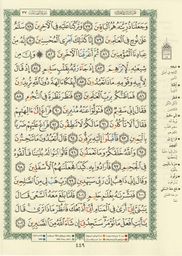 وَجَعَلْنَا ذُرِّيَّتَهُ هُمُ الْبَاقِينَ ٧٧ وَتَرَكْنَا عَلَيْهِ فِي الْآخِرِينَ ٧٨ سَلَامٌ
عَلَىٰ نُوحٍ فِي الْعَالَمِينَ ٧٩ إِنَّا كَذَٰلِكَ نَجْزِي الْمُحْسِنِينَ ٨٠ إِنَّهُ مِنْ
عِبَادِنَا الْمُؤْمِنِينَ ٨١ ثُمَّ أَغْرَقْنَا الْآخَرِينَ ٨٢ وَإِنَّ مِن
شِيعَتِهِ لَإِبْرَاهِيمَ ٨٣ إِذْ جَاءَ رَبَّهُ بِقَلْبٍ سَلِيمٍ ٨٤ إِذْ قَالَ لِأَبِيهِ
وَقَوْمِهِ مَاذَا تَعْبُدُونَ ٨٥ أَئِفْكًا آلِهَةً دُونَ اللَّهِ تُرِيدُونَ ٨٦
فَمَا ظَنُّكُم بِرَبِّ الْعَالَمِينَ ٨٧ فَنَظَرَ نَظْرَةً فِي النُّجُومِ ٨٨
فَقَالَ إِنِّي سَقِيمٌ ٨٩ فَتَوَلَّوْا عَنْهُ مُدْبِرِينَ ٩٠ فَرَاغَ إِلَىٰ آلِهَتِهِمْ
فَقَالَ أَلَا تَأْكُلُونَ ٩١ مَا لَكُمْ لَا تَنطِقُونَ ٩٢ فَرَاغَ عَلَيْهِمْ ضَرْبًا
بِالْيَمِينِ ٩٣ فَأَقْبَلُوا إِلَيْهِ يَزِفُّونَ ٩٤ قَالَ أَتَعْبُدُونَ مَا تَنْحِتُونَ ٩٥
وَاللَّهُ خَلَقَكُمْ وَمَا تَعْمَلُونَ ٩٦ قَالُوا ابْنُوا لَهُ بُنْيَانًا فَأَلْقُوهُ
فِي الْجَحِيمِ ٩٧ فَأَرَادُوا بِهِ كَيْدًا فَجَعَلْنَاهُمُ الْأَسْفَلِينَ ٩٨
وَقَالَ إِنِّي ذَاهِبٌ إِلَىٰ رَبِّي سَيَهْدِينِ ٩٩ رَبِّ هَبْ لِي مِنَ الصَّالِحِينَ ١٠٠
فَبَشَّرْنَاهُ بِغُلَامٍ حَلِيمٍ ١٠١ فَلَمَّا بَلَغَ مَعَهُ السَّعْيَ قَالَ يَا بُنَيَّ
إِنِّي أَرَىٰ فِي الْمَنَامِ أَنِّي أَذْبَحُكَ فَانظُرْ مَاذَا تَرَىٰ قَالَ يَا أَبَتِ
افْعَلْ مَا تُؤْمَرُ سَتَجِدُنِي إِن شَاءَ اللَّهُ مِنَ الصَّابِرِينَ ١٠٢
٤٤٩